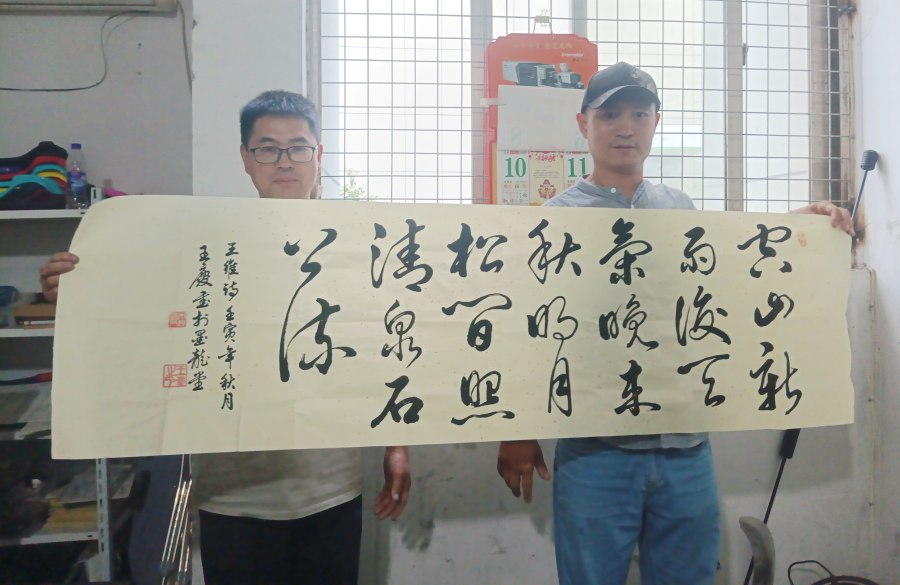 空山新
雨後天
氣晚来
秋明月
松間照
清泉石
上流
王維詩 壬寅年秋月
王慶書於墨龍堂
10
11